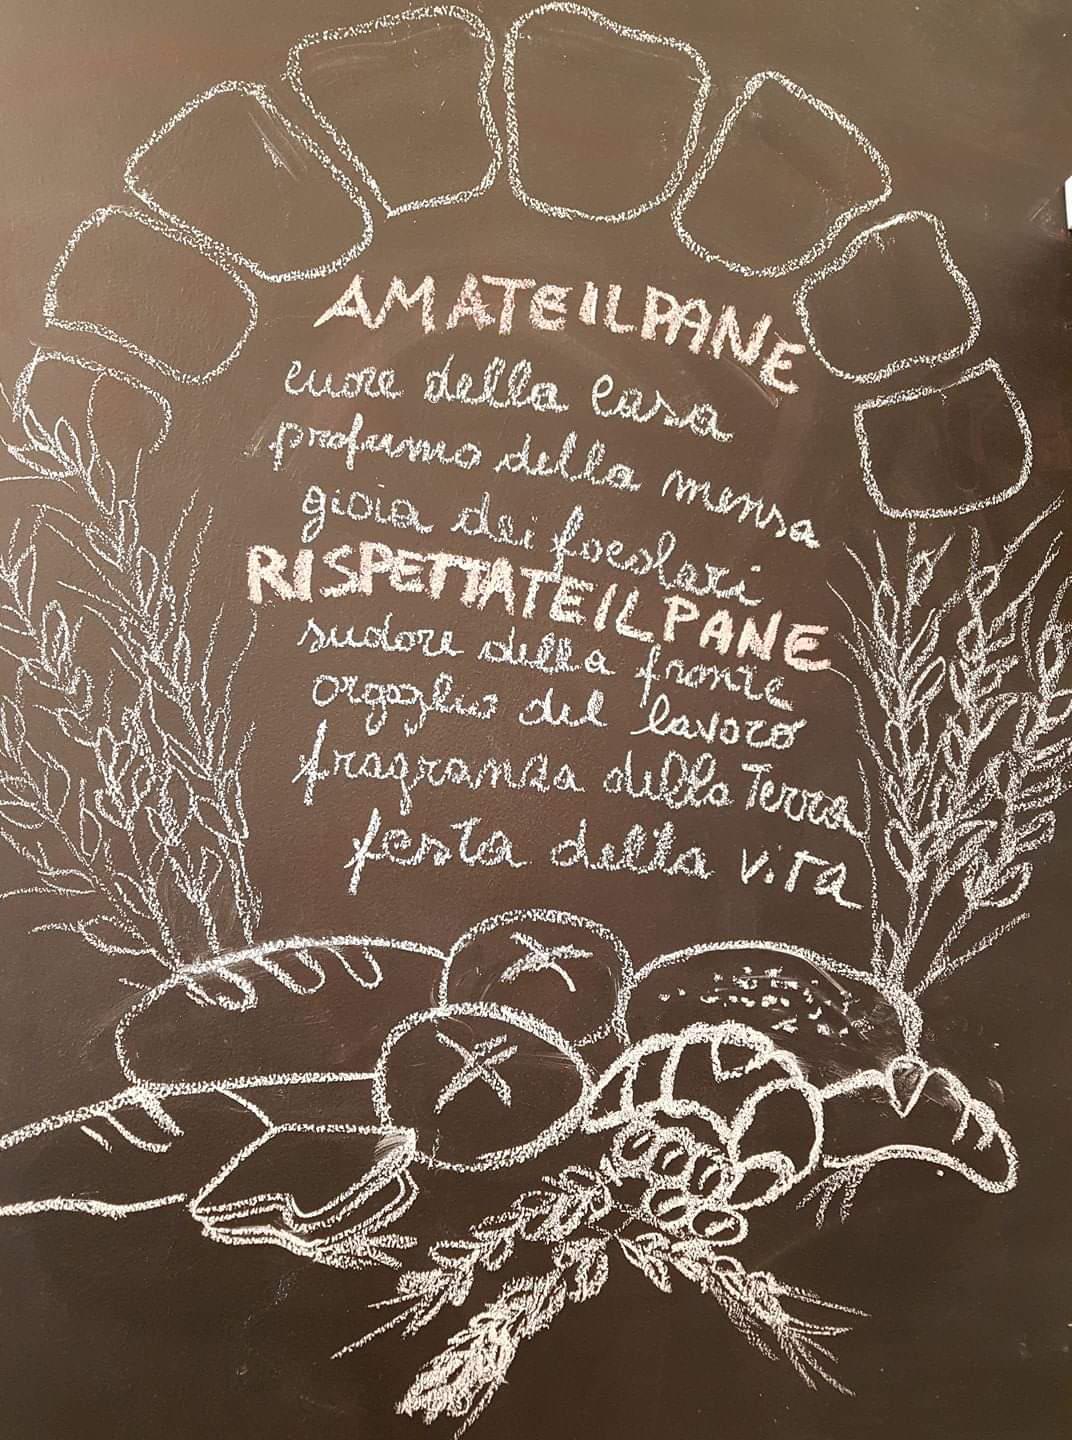 AMATE IL PANE
cuore della casa
profumo della mensa
gioia dei focolari
RISPETTATE IL PANE
sudore della fronte
orgoglio del lavoro
fragranza della Terra
festa della vita